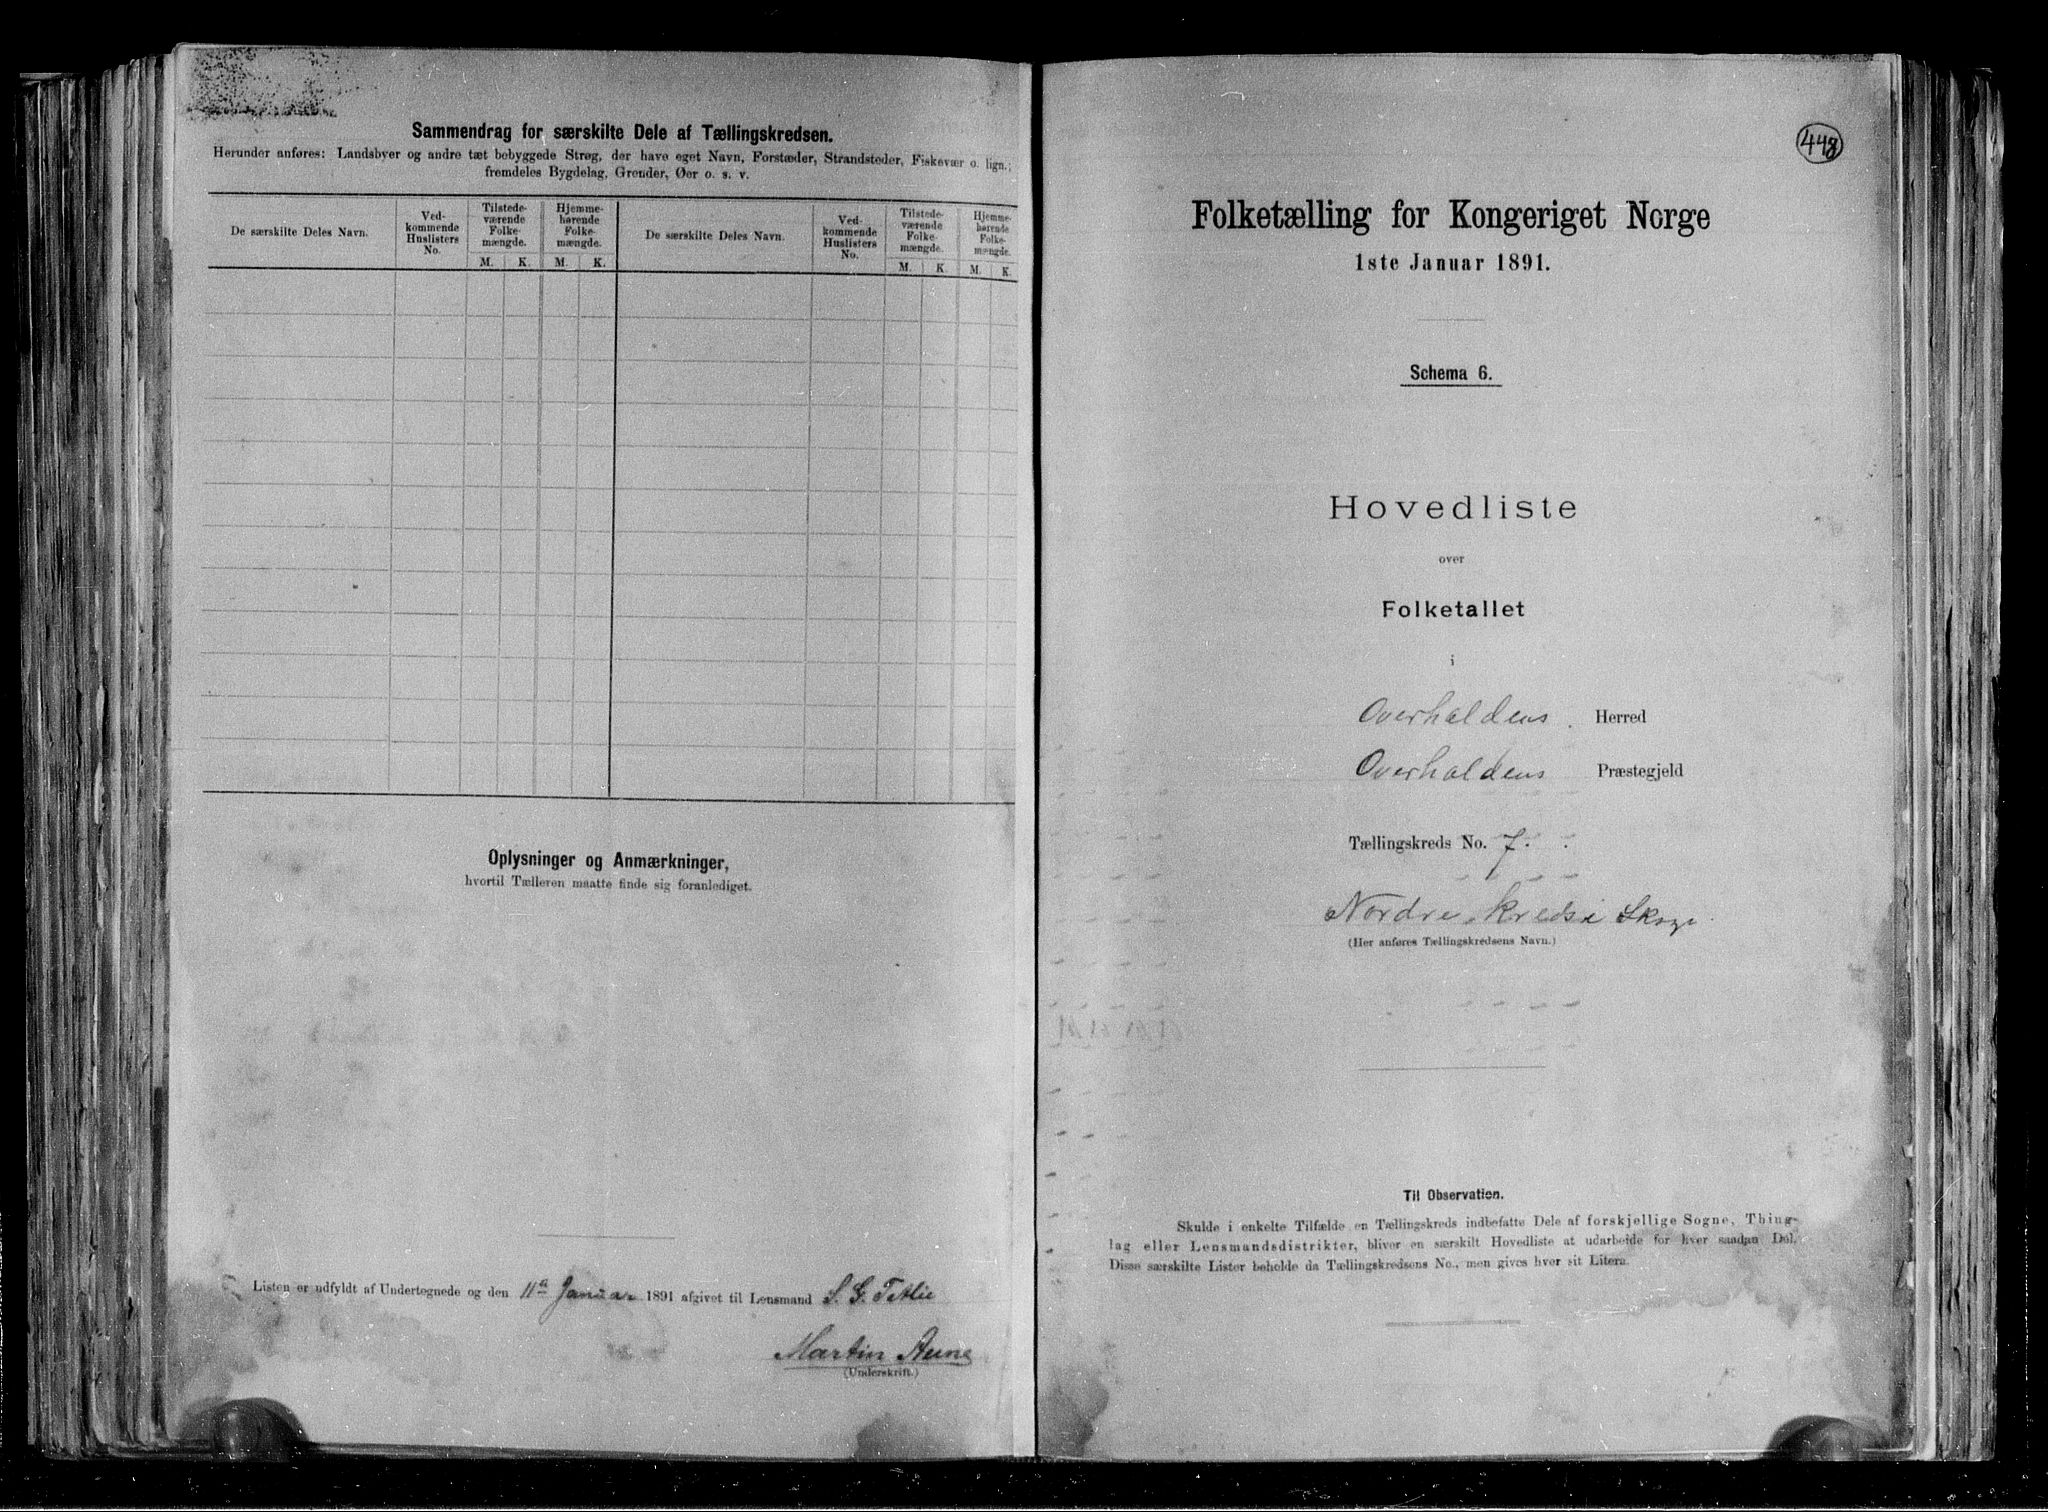 Sammendrag for særskilte Dele af Tællingskredsen.
Herunder anføres: Landsbyer og andre tæt bebyggede Strøg, der have eget Navn, Forstæder, Strandsteder, Fiskevær o. lign.;
fremdeles Bygdelag, Grender, Øer o. s. v.
De særskilte Deles Navn.
Ved-
kommende
Huslisters
No.
Tilstede-
værende
Folke-
mængde.
Hjemme-
hørende
Folke-
mængde.
M. K. M. K.
De særskilte Deles Navn.
Ved-
kommende
Huslisters
No.
Tilstede-
værende
Folke-
mængde.
Hjemme-
hørende
Folke-
mængde.
M. K. M. K.
Oplysninger og Anmærkninger,
hvortil Tælleren maatte finde sig foranlediget.
Listen er udfyldt af Undertegnede og den 11te Januar 1891 afgivet til Lensmand S. G.
Martin Aune
(Underskrift.)
448
Folketælling for Kongeriget Norge
1ste Januar 1891.
Schema 6.
Hovedliste
over
Folketallet
i
Overhaldens Herred
Overhaldens Præstegjeld
Tællingskreds No. 7.
Nordre kreds i Skage
(Her anføres Tællingskredsens Navn.)
Til Observation.
Skulde i enkelte Tilfælde en Tællingskreds indbefatte Dele af forskjellige Sogne, Thing-
lag eller Lensmandsdistrikter, bliver en særskilt Hovedliste at udarbeide for hver saadan Del.
Disse særskilte Lister beholde da Tællingskredsens No., men gives hver sit Litera.